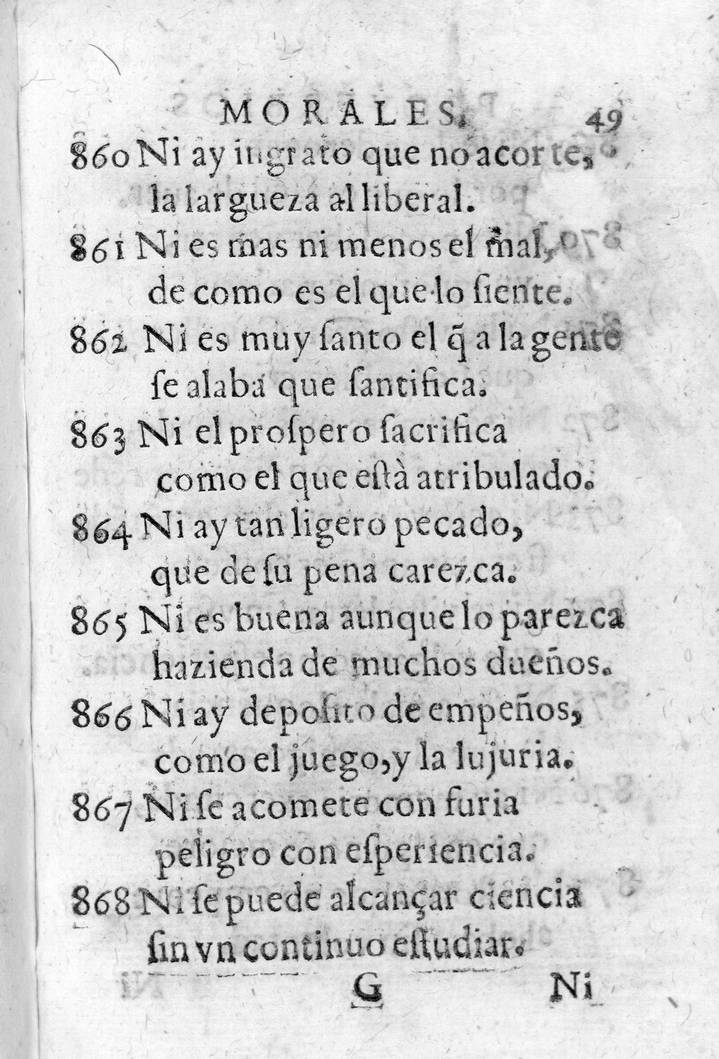 MORALES. 49
860 Ni ay ingrato que no acorte,
la largueza al liberal.
861 Ni es mas ni menos el mal,
de como es el que lo ſiente.
862 Ni es muy ſanto el q̃ a la gente
ſe alaba que ſantifica.
863 Ni el proſpero ſacrifica
como el que eſtà atribulado.
864 Ni ay tan ligero pecado,
que de ſu pena carezca.
865 Ni es buena aunque lo parezca
hazienda de muchos dueños.
866 Ni ay depoſito de empeños,
como el juego, y la lujuria.
867 Ni ſe acomete con furia
peligro con eſperiencia.
868 Ni ſe puede alcançar ciencia
ſin vn continuo eſtudiar.
G Ni